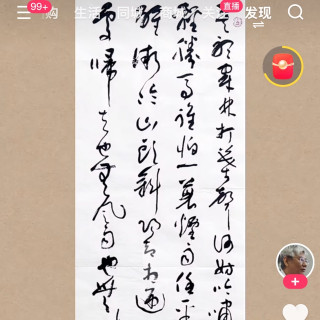 99+
购 生活 同城 关注 直播 发现
听穿林打叶声何妨吟啸
轻胜马谁怕一蓑烟雨任平
醒微冷山头斜照却相迎
处归去也无风雨也无